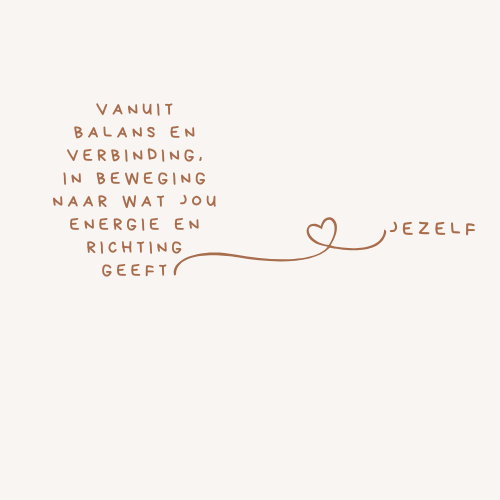 VANUIT
BALANS EN
VERBINDING,
IN BEWEGING
NAAR WAT JOU
ENERGIE EN
RICHTING
GEEFT
JEZELF